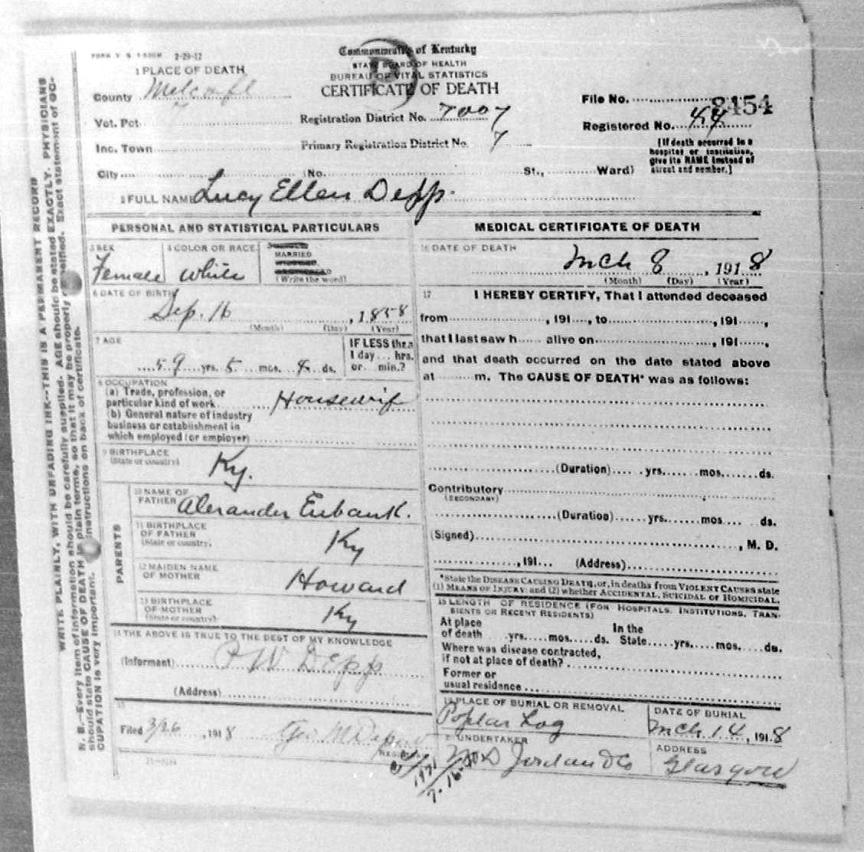 FORM V. S. 2-29-12
Commonwealth of Kentucky
STATE BOARD OF HEALTH
BUREAU OF VITAL STATISTICS
CERTIFICATE OF DEATH
1 PLACE OF DEATH
County Metcalfe
Vot. Pct.
Inc. Town
City (No. St., Ward)
Registration District No. 7007
Primary Registration District No. 7
File No. 8454
Registered No. 44
[If death occurred in a
hospital or institution,
give its NAME instead of
street and number.]
2 FULL NAME Lucy Ellen Depp.
PERSONAL AND STATISTICAL PARTICULARS
3 SEX
Female
4 COLOR OR RACE
White
MARRIED
(Write the word)
6 DATE OF BIRTH
Sep. 16, 1858
(Month) (Day) (Year)
7 AGE
59 yrs. 5 mos. ds.
IF LESS than
1 day... hrs.
or... min.?
8 OCCUPATION
(a) Trade, profession, or
particular kind of work Housewif
(b) General nature of industry
business or establishment in
which employed (or employer)
9 BIRTHPLACE
(State or country)
Ky.
PARENTS
10 NAME OF
FATHER Alexander Eubank.
11 BIRTHPLACE
OF FATHER
(State or country)
Ky
12 MAIDEN NAME
OF MOTHER Howard
13 BIRTHPLACE
OF MOTHER
(State or country)
Ky
14 THE ABOVE IS TRUE TO THE BEST OF MY KNOWLEDGE
(Informant) P W Depp
(Address)
15
Filed 3/26, 1918 Geo M Depp
MEDICAL CERTIFICATE OF DEATH
16 DATE OF DEATH
Mch 8, 1918
(Month) (Day) (Year)
17 I HEREBY CERTIFY, That I attended deceased
from , 191 , to , 191 ,
that I last saw h alive on , 191 ,
and that death occurred on the date stated above
at m. The CAUSE OF DEATH* was as follows:
(Duration) yrs. mos. ds.
Contributory
(SECONDARY)
(Duration) yrs. mos. ds.
(Signed) , M. D.
, 191 (Address)
*State the DISEASE CAUSING DEATH, or, in deaths from VIOLENT CAUSES state
(1) MEANS OF INJURY; and (2) whether ACCIDENTAL, SUICIDAL OR HOMICIDAL.
18 LENGTH OF RESIDENCE (FOR HOSPITALS, INSTITUTIONS, TRAN-
SIENTS OR RECENT RESIDENTS)
At place In the
of death yrs. mos. ds. State yrs. mos. ds.
Where was disease contracted,
if not at place of death?
Former or
usual residence
19 PLACE OF BURIAL OR REMOVAL
Poplar Log
DATE OF BURIAL
Mch 14, 1918
20 UNDERTAKER
Jordan & Co
ADDRESS
Glasgow
N. B.—Every item of information should be carefully supplied. AGE should be stated EXACTLY. PHYSICIANS
should state CAUSE OF DEATH in plain terms, so that it may be properly classified. Exact statement of OC-
CUPATION is very important. instructions on back of certificate.
WRITE PLAINLY, WITH UNFADING INK—THIS IS A PERMANENT RECORD